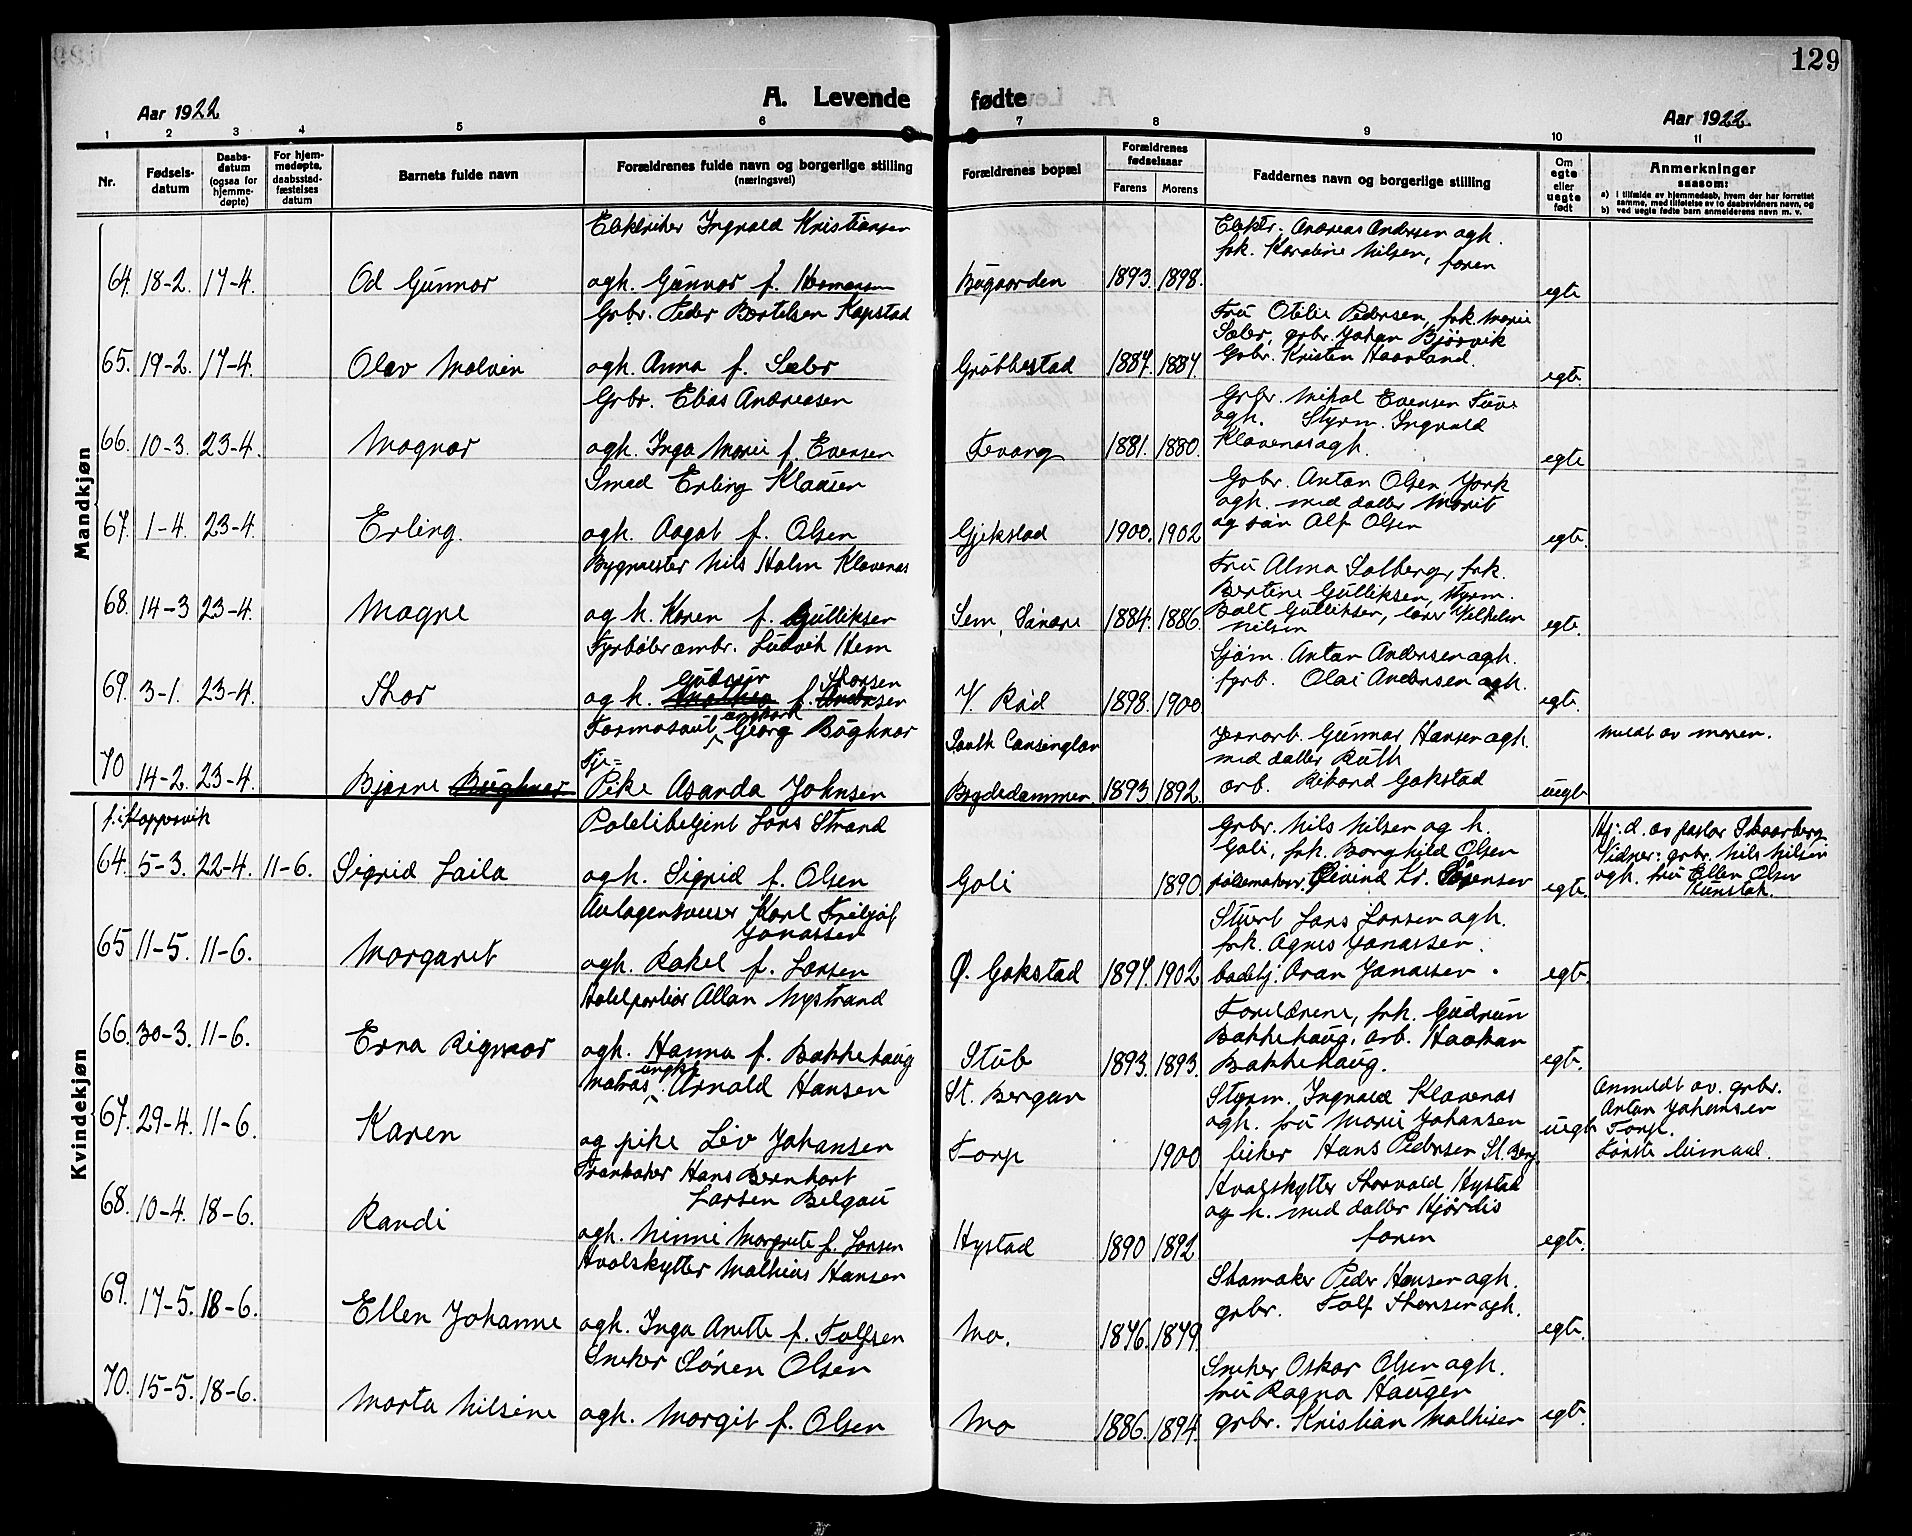 129
A. Levende fødte
Aar 1922
Aar 1922
1 2 3 4 5 6 7 8 9 10 11
Nr.
Fødsels-
datum
Daabs-
datum
(ogsaa for
hjemme-
døpte)
For hjem-
medøpte,
daabsstad-
fæstelses
datum
Barnets fulde navn
Forældrenes fulde navn og borgerlige stilling
(næringsvei)
Forældrenes bopæl
Forældrenes
fødselsaar
Farens Morens
Faddernes navn og borgerlige stilling
Om
egte
eller
uegte
født
Anmerkninger
saasom:
a) i tilfælde av hjemmedaab, hvem der har forrettet
samme, med tilføielse av to daabsvidners navn, og
b) ved uegte fødte barn anmelderens navn m. v.
Mandkjøn
Elektriker Ingvald Kristiansen Elektr. Andreas Andersen agh.
frk. Karoline Nilsen, faren
64. 18-2. 17-4. Od Gunnar agh. Gunvor f. Hermansen Bugaarden 1893. 1898. egte
Grbr. Peder Bertelsen Kapstad Fru Otilie Pedersen, frk. Marie
Sæbr, grbr. Johan Bjørvik
65. 19-2. 17-4. Olav Malvin agh. Anna f. Sæbr Grubbestad 1887. 1887. Grbr. Kristen Haavland. egte.
Grbr. Elias Andreasen Grbr. Mikal Evensen
agh. Styrm. Ingvald
66. 10-3. 23-4. Magnar agh. Inga Marie f. Evensen Fevang 1881. 1880. Klavenæs agh. egte
Smed Erling Klausen Grbr. Anton Olsen York
agh. med datter Marit
67. 1-4. 23-4. Erling. agh. Aagot f. Olsen Gjekstad 1900. 1902 og søn Alf Olsen egte.
Bygmester Nils Holm Klavenæs Fru Alma Solberg, frk.
Bertine Gulliksen, styrm.
68. 14-3 23-4. Magne og h. Karen f. Gulliksen Sem, Sandre 1884. 1886. Bolt Gulliksen, lærer Vilhelm
Nilsen egte.
Fyrbøter ambr. Ludvik Hem Sjøm. Anton Andersen agh.
Gudrun Thorsen
69. 3-1. 23-4. Thor og h. f. V. Rød 1898. 1900. fyrb. Olai Andersen agh. egte.
ungkarl
Georg Bughner South Jernarb. Gunnar Hansen agh. Meldt av moren.
med datter Ruth
70 14-2. 23-4. Bjarne Bughner Tje=
Pike Asanda Johnsen Bogdedammen 1893. 1892. arb. Rikard Gokstad uegte
Kvindekjøn
f. i
Politibetjent Lars Strand Grbr. Nils Nilsen og h. Hj. d. av pastor Skaarberg
Goli, frk. Borghild Olsen Vidner: grbr. Nils Nilsen
64. 5-3. 22-4. 11-6. Sigrid Laila agh. Sigrid f. Olsen Goli 1890. Øivind Kr. Sørensen egte. agh. fru Ellen Olsen

Karl Fritjof Stuert Lars Larsen agh.
Jonassen frk. Agnes Jonassen.
65 11-5. 11-6. Margaret agh. Rakel f. Larsen Ø. Gokstad 1897. 1902. Aran Jonassen. egte.
Hotelportiør Allan Nystrand Forældrene, frk. Gudrun
Bakkehaug, arb. Haakon
66. 30-3. 11-6. Erna Rigmor agh. Hanna f. Bakkehaug Stub 1893. 1893. Bakkehaug. egte.
ungk.
Matros Arnold Hansen St. Bergan Styrm. Ingvald Klavenæs Anmeldt av grbr.
agh. fru Marie Johansen Anton Johansen
67. 29-4. 11-6. Karen og pike Liv Johansen Torp 1900 Hans Pedersen St. Berg. uegte Torp.
Første leiermaal.
Trankoker Hans Bernhart Hvalskytter Thorvald Hystad
Larsen Belgau og h. med datter Hjørdis
68. 10-4. 18-6. Randi agh. Minni Margrete f. Larsen Hystad 1890 1892 faren egte.
Hvalskytter Mathias Hansen Skomaker Peder Hansen agh.
69. 17-5. 18-6. Ellen Johanne agh. Inga Anette f. Tolfsen Mo. 1876. 1879. grbr. Tolf Thorsen agh. egte.
Sneker Søren Olsen Sneker Oskar Olsen agh.
fru Ragna Haugen
70. 15-5. 18-6. Marta Nilsine agh. Margit f. Olsen Mo 1886. 1894. grbr. Kristian Mathisen egte.